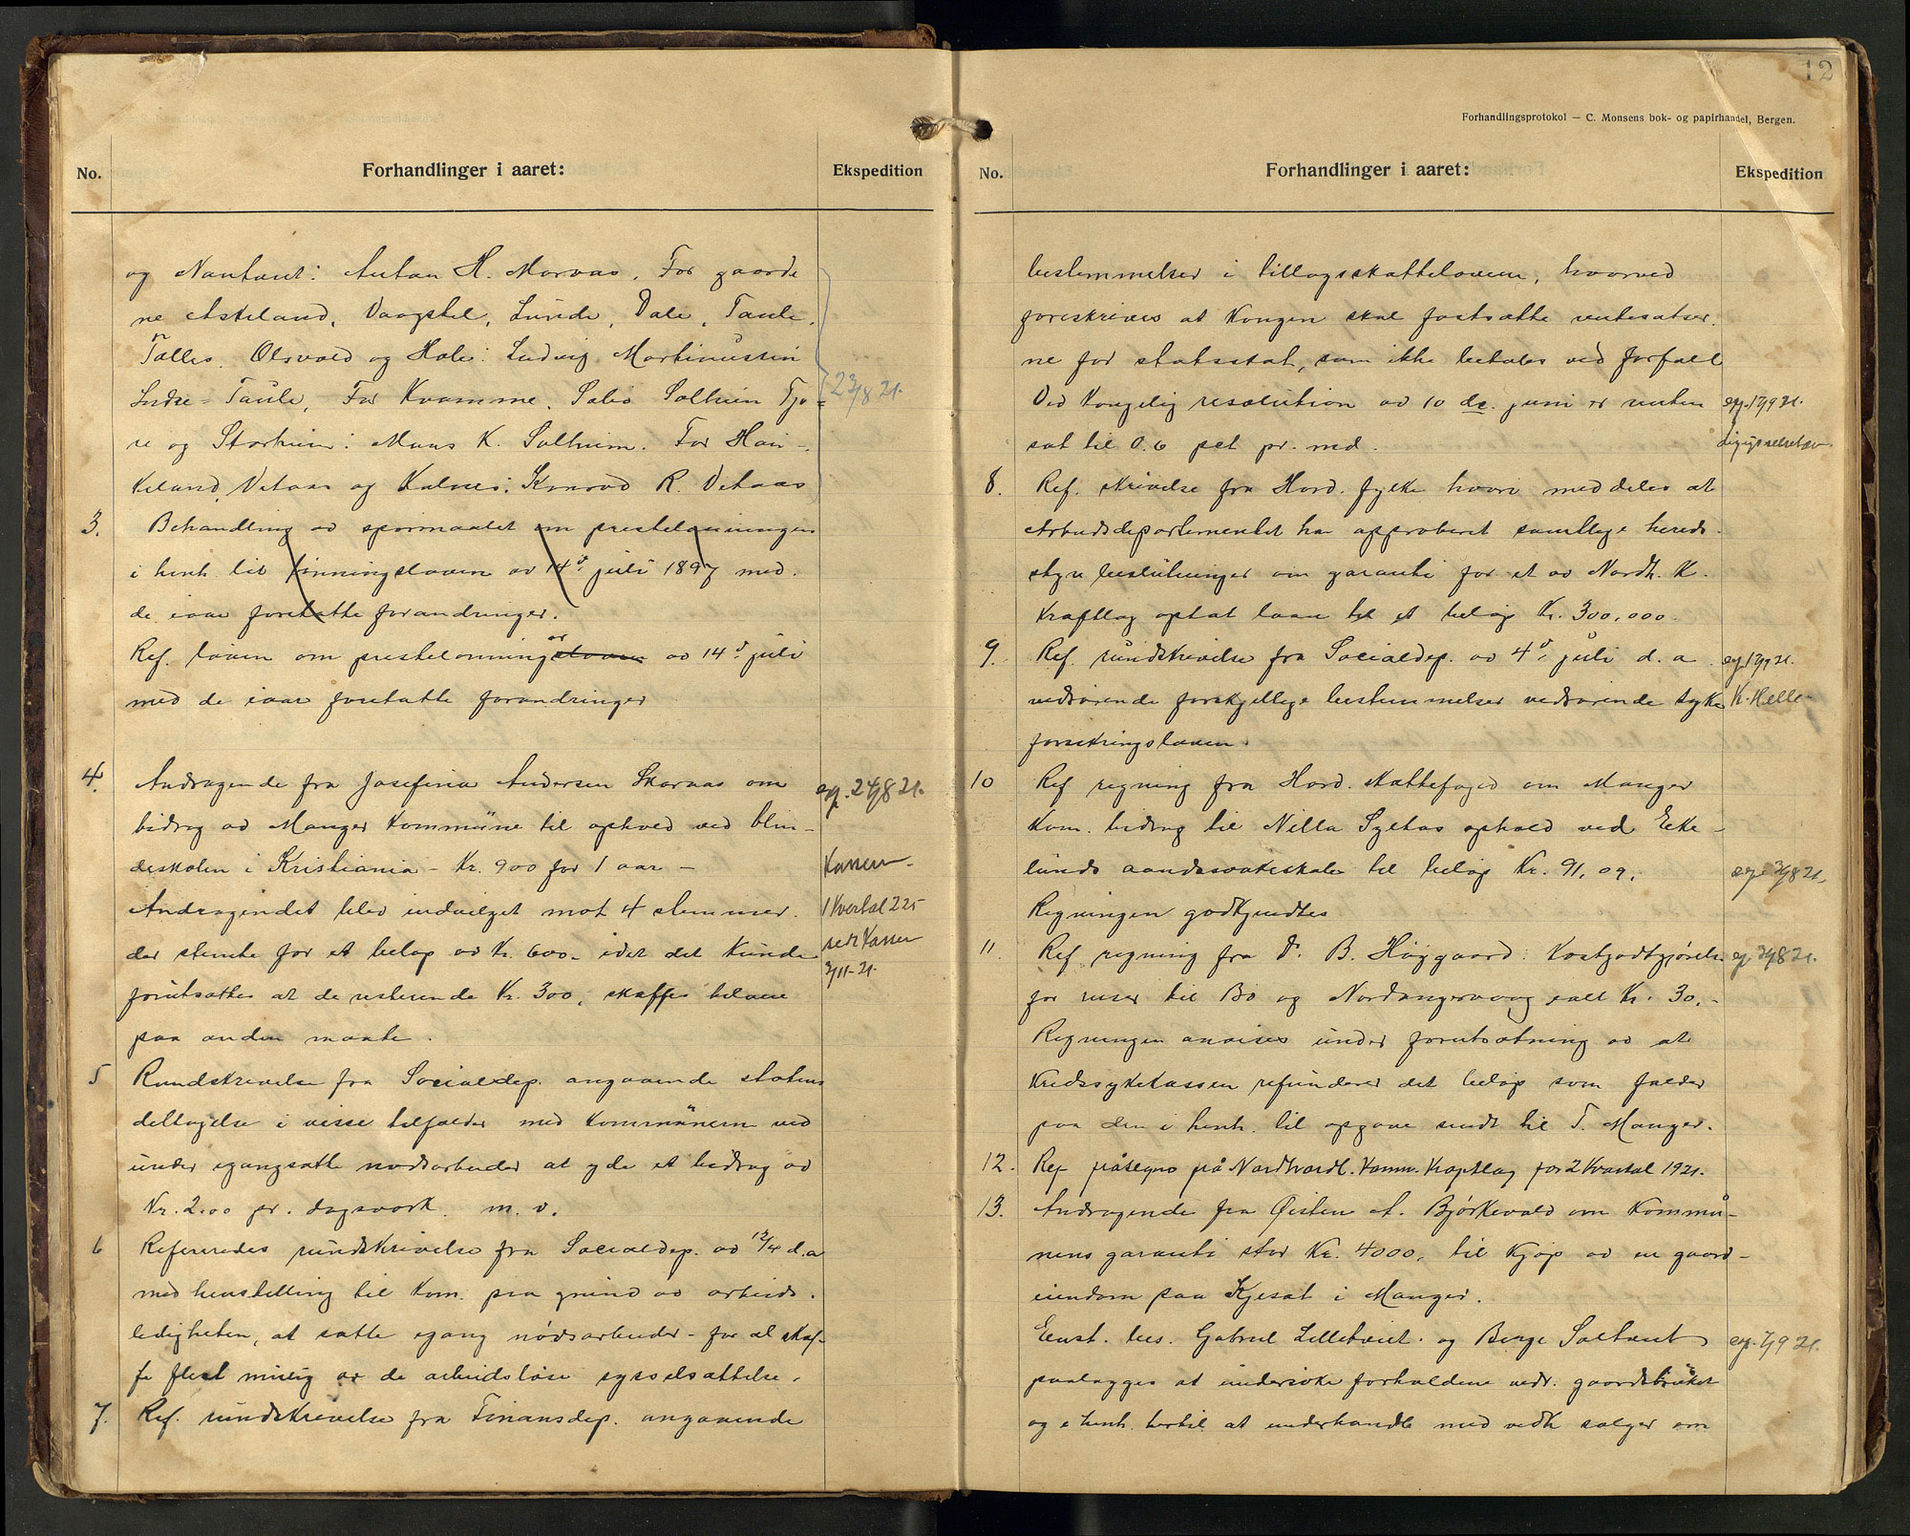 No.
Forhandlinger i aaret:
Ekspedition
og Nautant: Anton H. Morvas. For gaarde
ne Askeland, Vaagstel, Lunde, Dale, Taule,
Tolles. Olsvold og Hole: Ludvig Martinussen
Indre-Taule, For Kvamme, Solheim Tjo-
re og Storheim: Mons K. Solheim. For Hau-
keland, Vetaas og Kalnes: Konrad R. Vetaas
23/8 21.
3. Behandling av spørmaalet om prestelønningen
i henh til lønningsloven av 14d juli 1897 med
de iaar foretatte forandringer.
Ref. loven om prestelønninger av 14d juli
med de iaar foretatte forandringer
4. Andragende fra Josefine Andersen Skornas om
bidrag av Manger kommune til ophold ved blin-
deskolen i Kristiania - Kr. 900 for 1 aar -
Andragendet blev indvilget mot 4 stemmer
der stemte for et beløp av Kr. 600.- idet det kunde
forutsættes at de resterende Kr. 300, skaffes tilveie
paa anden maate.
exp. 24/8 21.
Kassen
1 Kvartal 225
sedt Kassen
2/11-21.
5 Rundskrivelse fra Socialdep. angaaende statens
deltagelse i visse tilfælder med kommunene ved
under igangsatte nødsarbeider at yde et bidrag av
Kr. 2.00 pr. dagsverk. m. v.
6 Refereredes rundskrivelse fra Socialdep. av 12/4 d.a
med henstilling til kom. paa grund av arbeids-
ledigheten, at sætte igang nødsarbeider - for at skaf-
fe flest mulig av de arbeidsløse sysselsættelse.
7. Ref. rundskrivelse fra Finansdep. angaaende
12
Forhandlingsprotokol — C. Monsens bok- og papirhandel, Bergen.
No.
Forhandlinger i aaret:
Ekspedition
bestemmelser i tillægsskatteloven, hvorved
foreskrives at Kongen skal fastsætte rentesatser
ne for statsskat, som ikke betales ved forfall
Ved Kongelig resolution av 10 ds. juni er renten
sat til 0.6 pct pr. md.
exp. 17/9 21.
ligningsrelsen
8. Ref. skrivelse fra Hord. fylke hvori meddeles at
Arbeidsdepartementet har approberet samtlige hereds-
styre beslutninger om garanti for et av Nordh. K.
Kraftlag optat laan til et beløp Kr. 300.000.
9. Ref. rundskrivelse fra Socialdep. av 4d juli d. a
vedrørende forskjellige bestemmelser vedrørende syke
forsikringsloven.
exp 17/9 21.
K. Helle
10 Ref regning fra Hord. skattefoged om Manger
kom. bidrag til Nilla Syltas ophold ved Eke-
lunds aandssvakeskole til beløp Kr. 91,09.
Regningen godkjendtes
exp 31/8 21.
11. Ref regning fra Dr. B. Høygaard: Kostgodtgjørelse
for reiser til Bø og Nordangervaag ialt Kr. 30.-
Regningen anvises under forutsætning av at
Kredssykekassen refunderer det beløp som falder
paa den i henh. til opgave sendt til T. Manger.
exp 31/8 21.
12. Ref påtegn på Nordhordl. Komm. Kraftlag for 2 Kvartal 1921.
13. Andragende fra Øisten A. Bjørkevold om kommu-
nens garanti stor Kr. 4000, til kjøp av en gaard-
eiendom paa Kjesåt i Manger.
Enst. bes. Gabriel Lilletveit og Berge Soltveit
paalægges at undersøke forholdene vedr. gaardsbruket
og i henh. hertil at underhandle med vedk sælger om
exp. 7/9 21.